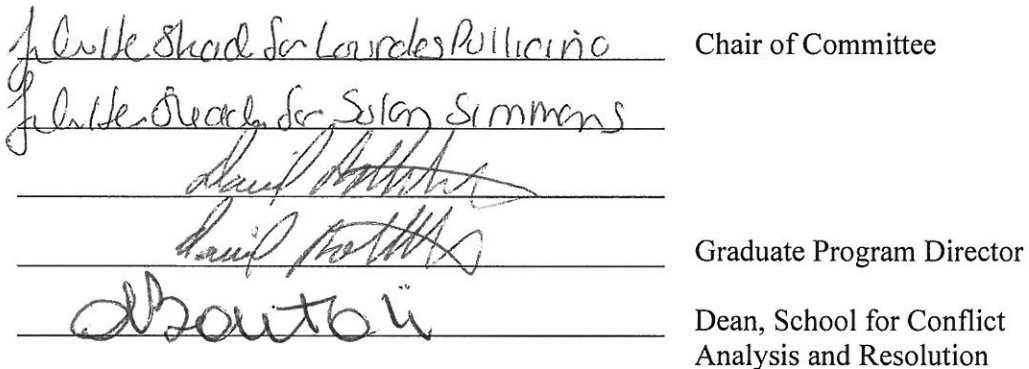 Shad for Lourdes Pullicino Chair of Committee
Shad for Solon Simmons
David
David Graduate Program Director
Dean, School for Conflict
Analysis and Resolution